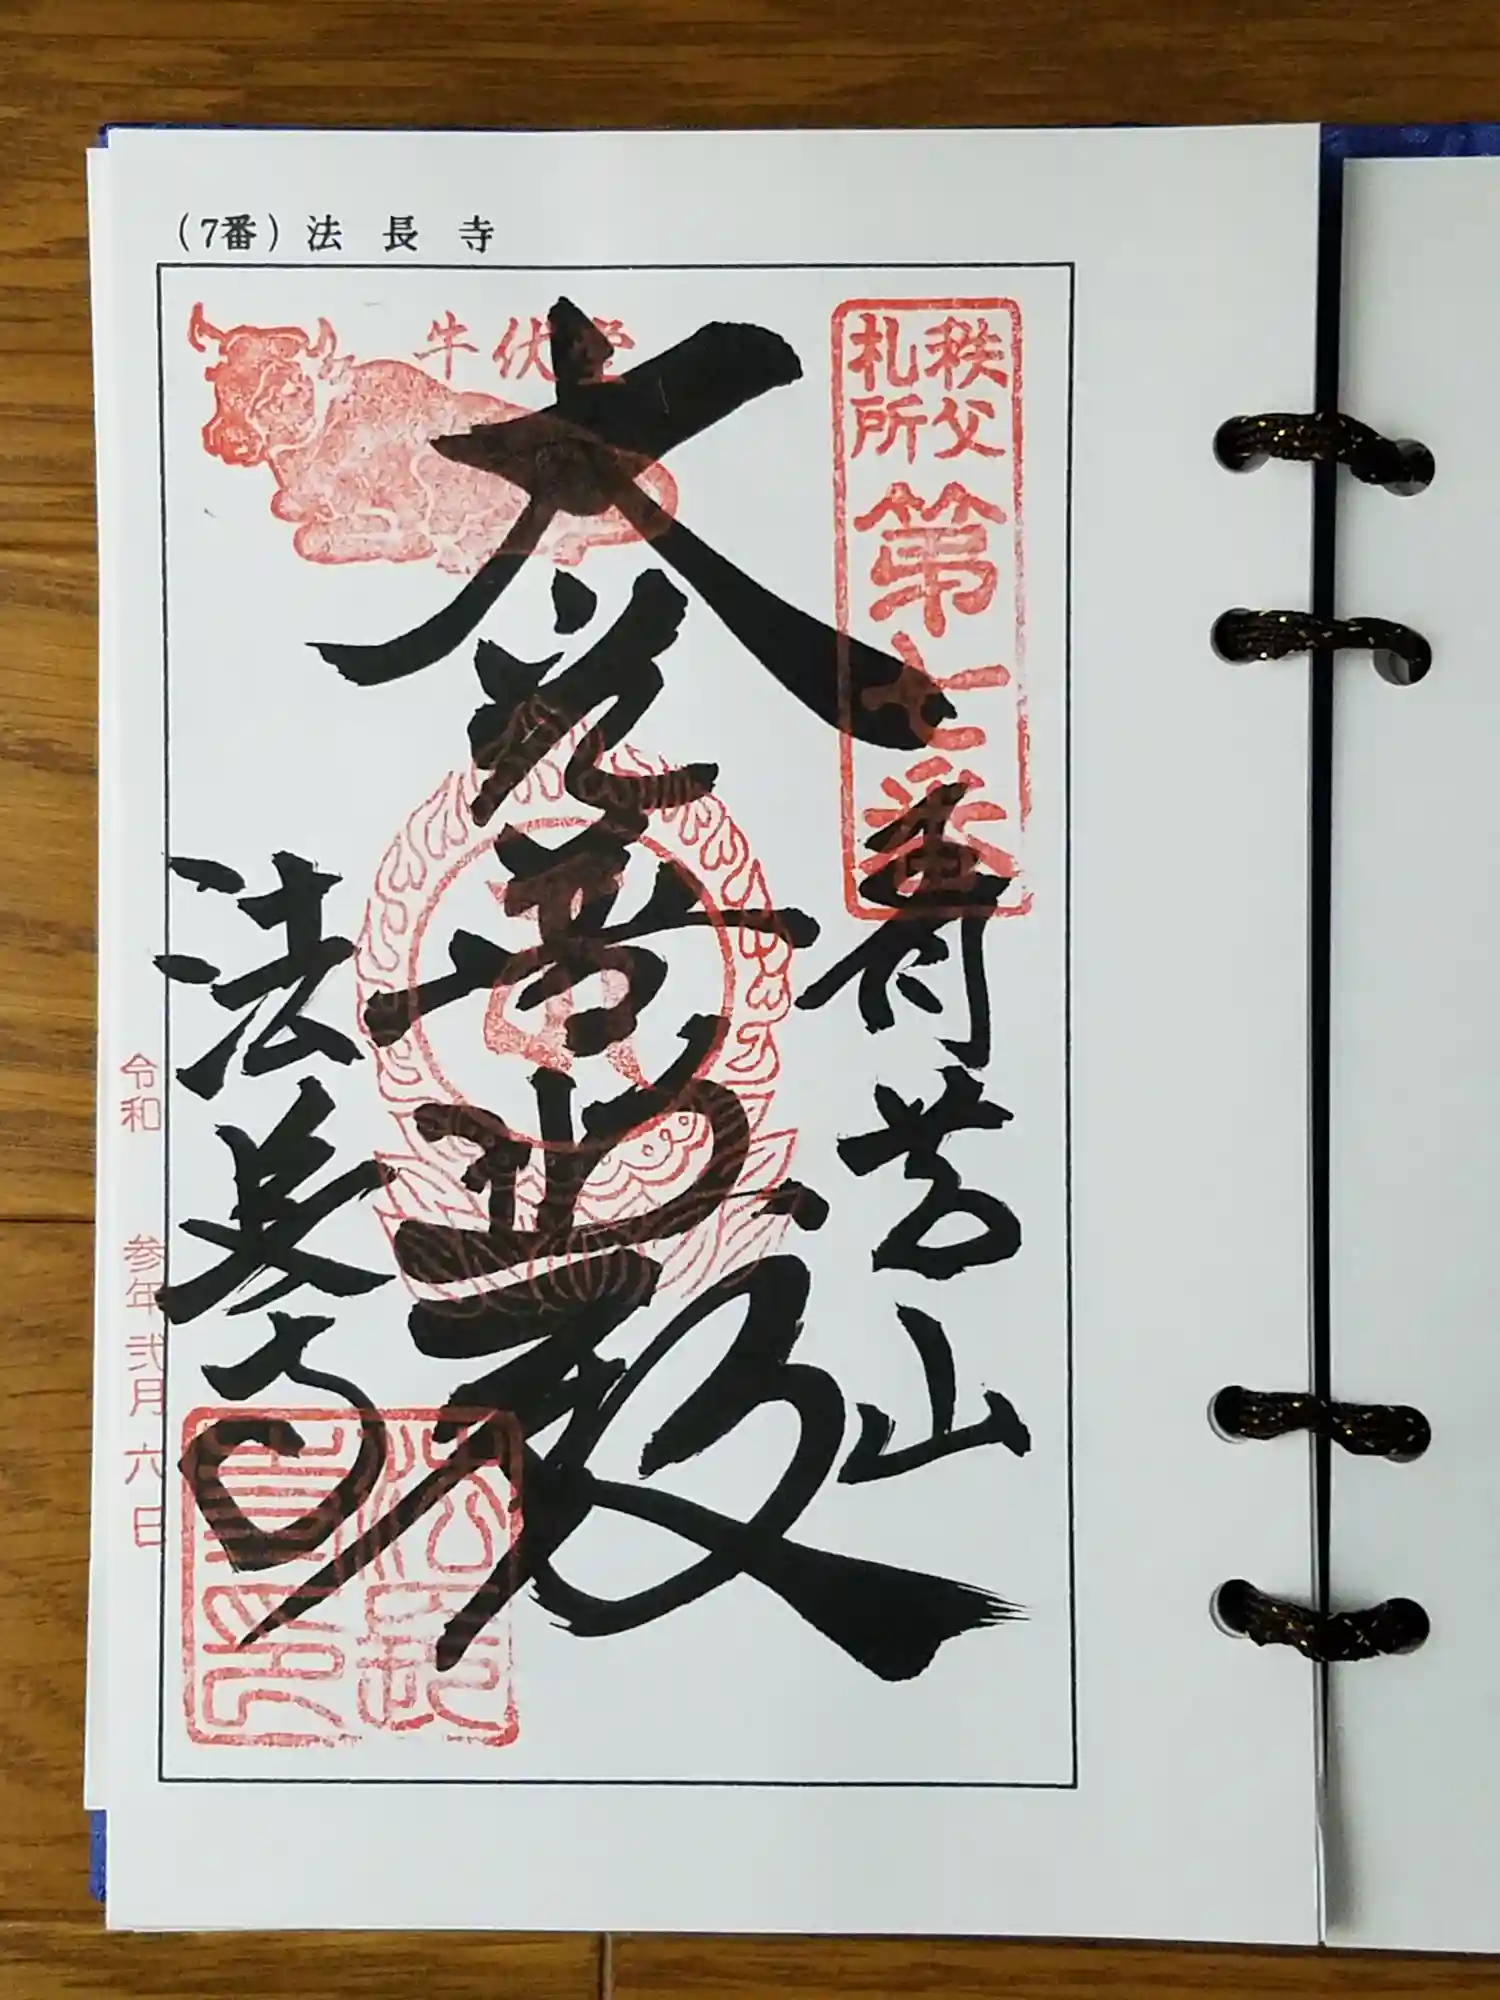 (7番) 法長寺
牛伏堂
秩父
札所
第七番
青苔山
大光普照殿
法長寺
令和 参年弐月六日